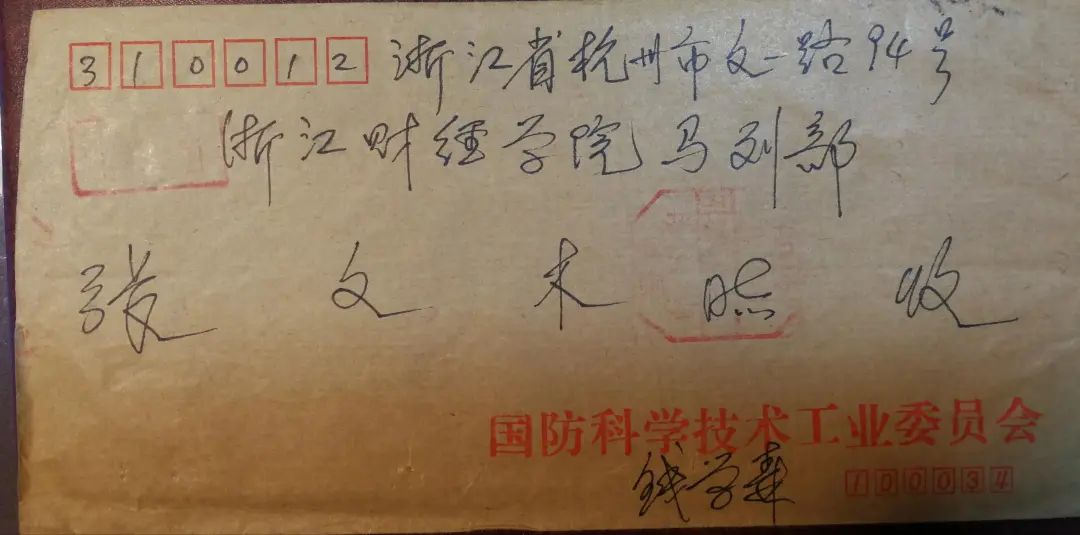 310012 浙江省杭州市文一路94号
浙江财经学院马列部
张文木 收
国防科学技术工业委员会
钱学森 100034